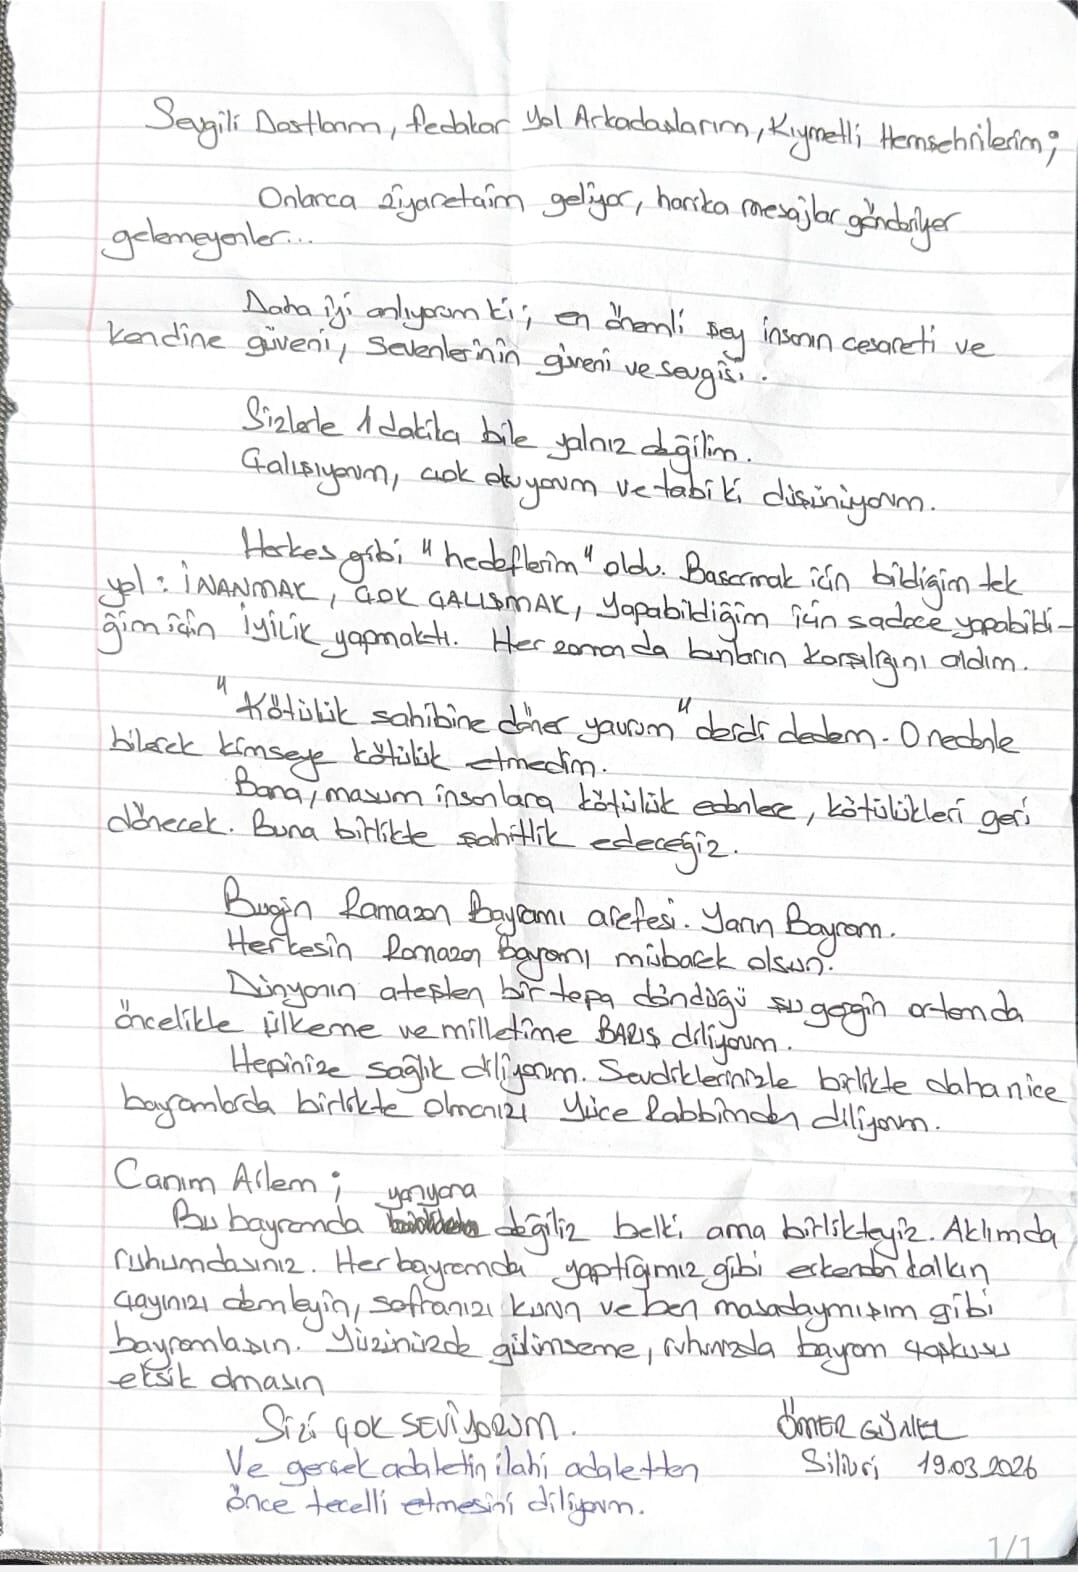 Sevgili Dostlarım, fedakar Yol Arkadaşlarım, Kıymetli Hemşehrilerim;
Onlarca ziyaretçim geliyor, harika mesajlar gönderiyer
gelemeyenler...
Daha iyi anlıyorum ki; en önemli şey insanın cesareti ve
kendine güveni, sevenlerinin güveni ve sevgisi.
Sizlerle 1 dakika bile yalnız değilim.
Çalışıyorum, çok okuyorum ve tabi ki düşünüyorum.
Herkes gibi "hedeflerim" oldu. Başarmak için bildiğim tek
yol: İNANMAK, ÇOK ÇALIŞMAK, yapabildiğim için sadece yapabildi-
ğim için İYİLİK yapmaktı. Her zaman da bunların karşılığını aldım.
"Kötülük sahibine döner yavrum" derdi dedem. O nedenle
bilerek kimseye kötülük etmedim.
Bana, masum insanlara kötülük edenlere, kötülükleri geri
dönecek. Buna birlikte şahitlik edeceğiz.
Bugün Ramazan Bayramı arefesi. Yarın Bayram.
Herkesin Ramazan bayramı mübarek olsun.
Dünyanın ateşten bir topa döndüğü şu gergin ortamda
öncelikle ülkeme ve milletime BARIŞ diliyorum.
Hepinize sağlık diliyorum. Sevdiklerinizle birlikte daha nice
bayramlarda birlikte olmanızı Yüce Rabbimden diliyorum.
Canım Ailem;
Bu bayramda yanyana değiliz belki, ama birlikteyiz. Aklımda
ruhumdasınız. Her bayramda yaptığımız gibi erkenden kalkın
çayınızı demleyin, sofranızı kurun ve ben masadaymışım gibi
bayramlaşın. Yüzünüzde gülümseme, ruhunuzda bayram coşkusu
eksik olmasın
Sizi ÇOK SEVİYORUM.
ÖMER GÜNEL
Ve gerçek adaletin ilahi adaletten
Silivri 19.03.2026
önce tecelli etmesini diliyorum.
1/1